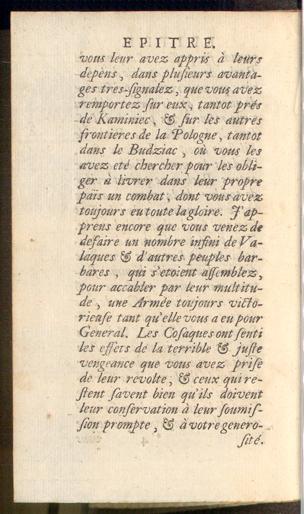 EPITRE.
vous leur avez appris à leurs
depens, dans plusieurs avanta-
ges tres-signalez, que vous avez
remportez sur eux, tantot prés
de Kaminiec, & sur les autres
frontieres de la Pologne, tantot
dans le Budziac, où vous les
avez eté chercher pour les obli-
ger à livrer dans leur propre
païs un combat, dont vous avez
toujours eu toute la gloire. J'ap-
prens encore que vous venez de
defaire un nombre infini de Va-
laques & d'autres peuples bar-
bares, qui s'etoient assemblez,
pour accabler par leur multitu-
de, une Armée toujours victo-
rieuse tant qu'elle vous a eu pour
General. Les Cosaques ont senti
les effets de la terrible & juste
vengeance que vous avez prise
de leur revolte, & ceux qui re-
stent savent bien qu'ils doivent
leur conservation à leur soumis-
sion prompte, & à votre genero-
sité.